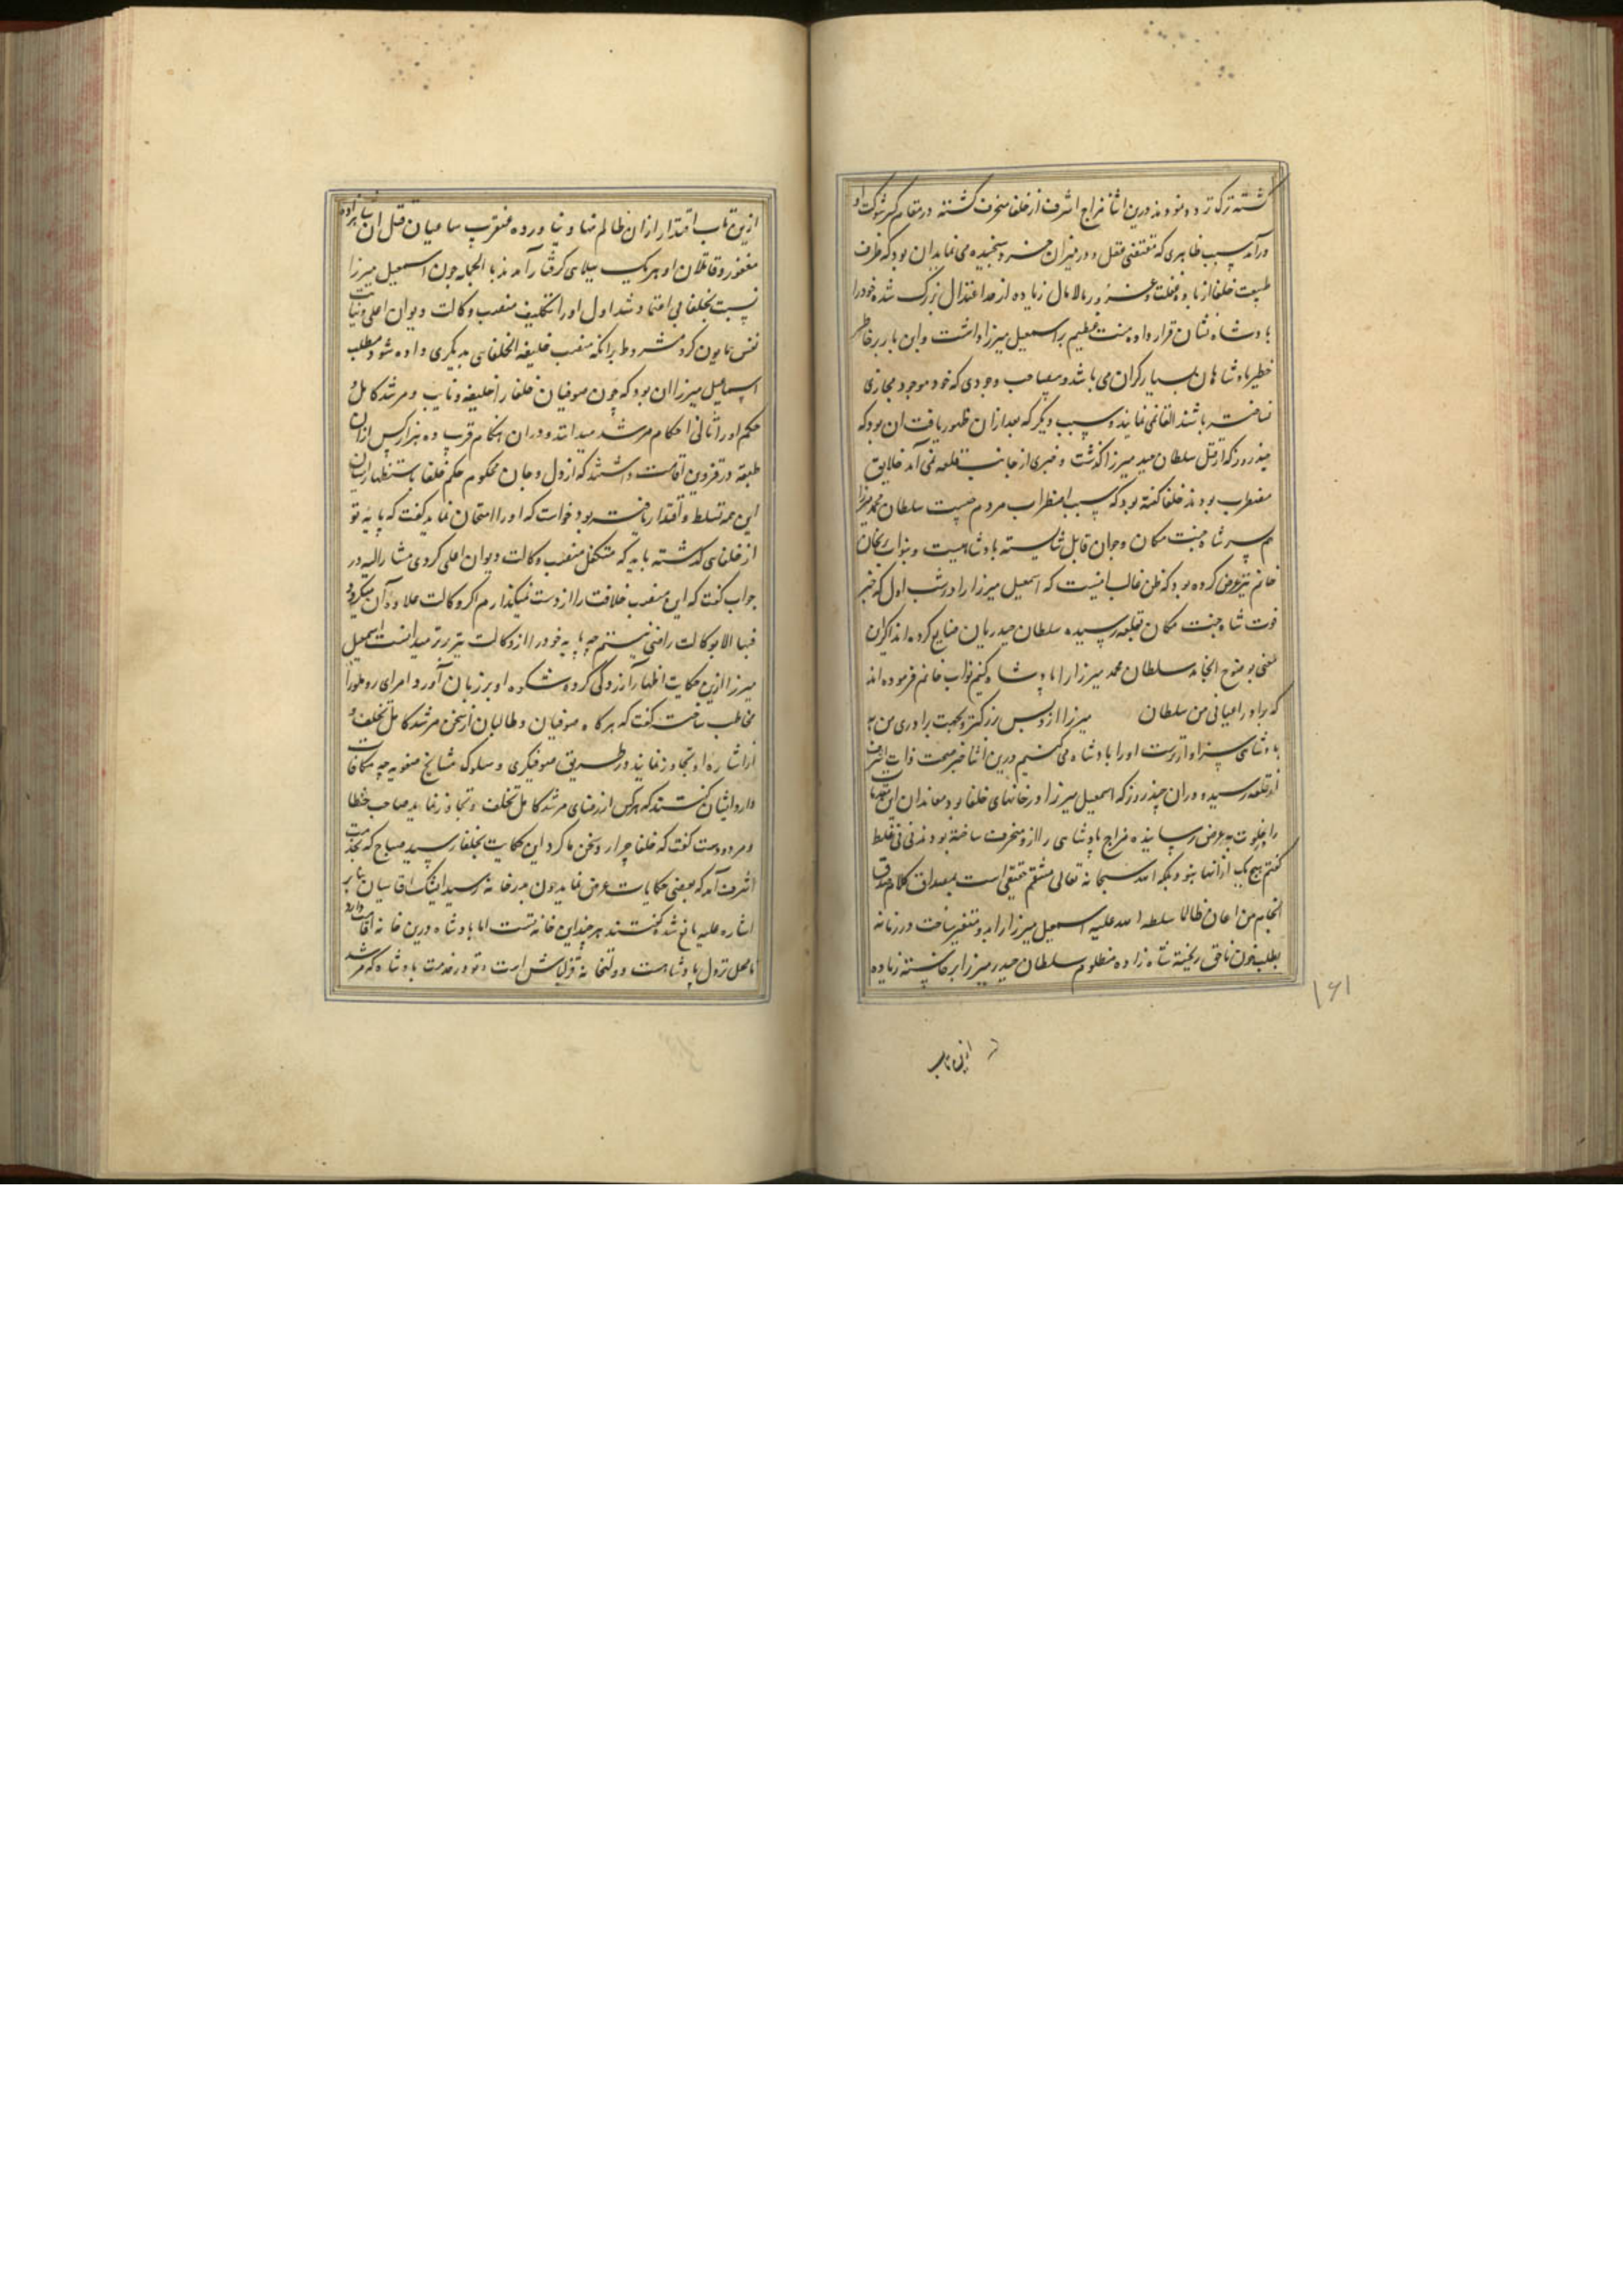 کشته ترک تردد نمودند درین اثنا مزاج اشرف از خلفا منحرف کشته در مقام کسر شوکت او
درآمد سبب ظاهری که مقتضی عقل و در میزان خرد سنجیده می نماید ان بود که ظرف
طبیعت خلفا از باده غفلت و غرور مالامال زیاده از حد اعتدال بزرک شده خود را
پادشاه نشان قرار داده منت عظیم بر اسمعیل میرزا داشت و این بار بر خاطر
خطیر پادشاهان بسیار کران می باشد و بمصاحب وجودی که خود موجود مجازی
ساخته باشند القا نمی نمایند و سبب دیکر که بعد از ان ظهور یافت ان بود که
چند روز که از قتل سلطان حیدر میرزا کذشت و خبری از جانب قلعه نمی آمد خلایق
مضطرب بودند خلفا کفته بود که سبب اضطراب مردم چیست سلطان محمد میرزا
هم پسر شاه جنت مکان و جوان قابل شایسته پادشاهیست و بنواب پریخان
خانم نیز عرض کرده بود که ظن غالب اینست که اسمعیل میرزا را در شب اول که خبر
فوت شاه جنت مکان بقلعه رسیده سلطان حیدریان ضایع کرده اند اکر این
معنی بوضوح انجامد سلطان محمد میرزا را پادشاه کنیم نواب خانم فرموده اند
که برادر اعیانی من سلطان میرزا ازو بس بزرکتر و بجهت برادری من به
پادشاهی سزاوارترست اورا پادشاه می کنیم درین اثنا خبر صحت ذات اشرف
از قلعه رسیده دران چند روز که اسمعیل میرزا در خانهای خلفا بود معاندان این مقدمات
را بخلوت بعرض رسانیده مزاج پادشاهی را ازو منحرف ساخته بودند نی نی غلط
کفتم هیچ یک ازانها نبود بلکه الله سبحانه تعالی منتقم حقیقی است بمصداق کلام صدق
انجام من اعان ظالما سلطه الله علیه اسمعیل میرزا را بدو متغیر ساخت و زمانه
بطلب خون ناحق ریخته شاه زاده مظلوم سلطان حیدر میرزا برخاسته زیاده
ازین تاب
۱۶۱
ازین تاب اقتدار ازان ظالم نهاد نیاورده عنقریب ساعیان قتل ان شاهزاده
مغفور و قاتلان او هریک ببلای کرفتار آمدند بالجمله چون اسمعیل میرزا
نسبت بخلفا بی اعتماد شد اول اورا تکلیف منصب وکالت دیوان اعلی و نیابت
نفس همایون کرد مشروط برانکه منصب خلیفه الخلفای بدیکری داده شود و مطلب
اسماعیل میرزا ان بود که چون صوفیان خلفا را خلیفه و نایب و مرشد کامل و
حکم اورا تالی احکام مرشد میدانند و دران هنکام قریب ده هزار کس ازان
طبقه در قزوین اقامت داشتند که از دل و جان محکوم حکم خلفا باستظهار ایشان
این همه تسلط و اقتدار یافته بود خواست که اورا امتحان نماید کفت که پایه تو
از خلفای کذشته باید که متکفل منصب وکالت دیوان اعلی کردی مشار الیه در
جواب کفت که این منصب خلافت را از دست نمیکذارم اکر وکالت علاوه آن میکردد
فبها الا بوکالت راضی نیستم چه پایه خود را از وکالت برتر میدانست اسمعیل
میرزا ازین حکایت اظهار آزردکی کرده شکوه او بر زبان آورد و امرای روملو را
مخاطب ساخته کفت که هرکاه صوفیان و طالبان از سخن مرشد کامل تخلف و
از اشاره او تجاوز نمایند در طریق صوفیکری و سلوک مشایخ صفویه چه مکافات
دارد ایشان کفتند که هرکس از رضای مرشد کامل تخلف و تجاوز نماید صاحب خطا
و مردودست کفت که خلفا چرا رد سخن ما کرد این حکایت بخلفا رسید صباح که بخدمت
اشرف آمد که بعضی حکایات عرض نماید چون بدرخانه رسید ایشیک اقاسیان بنابر
اشاره علیه مانع شده کفتند هرچند این خانه تست اما پادشاه درین خانه اقامت دارد
تا محل نزول پادشاهست دولتخانه قزلباش است و تو در خدمت پادشاه که مرشد